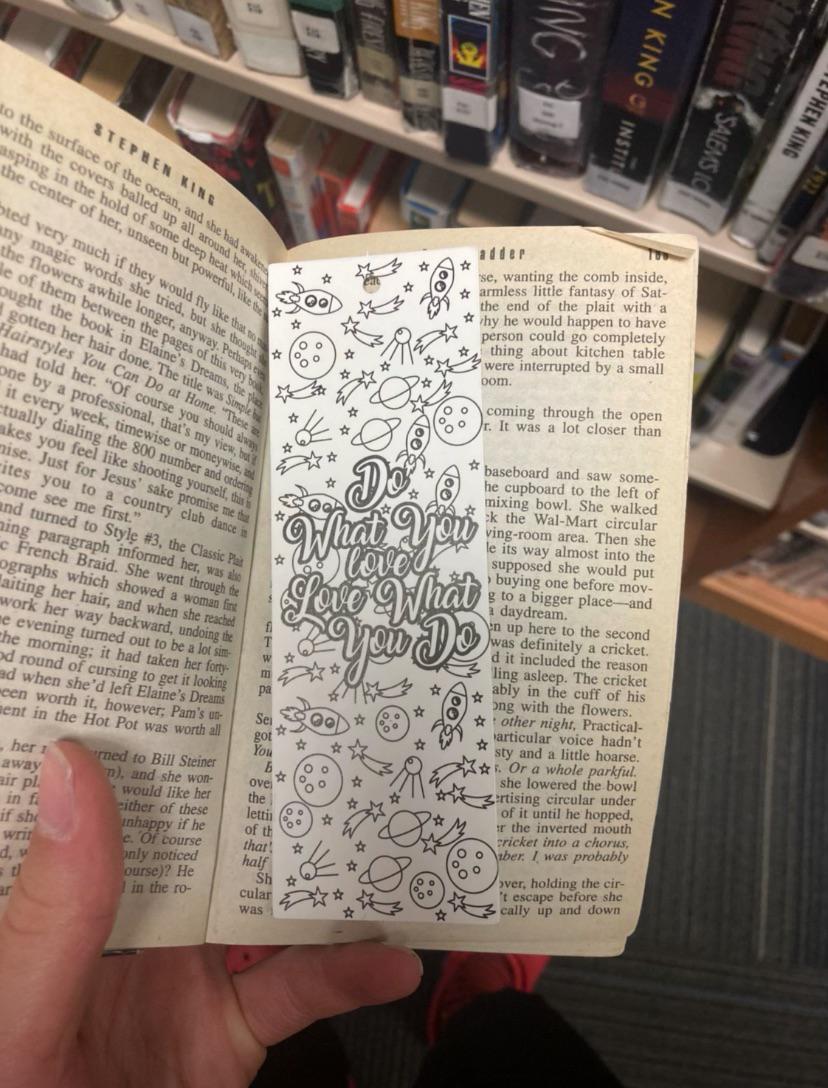 STEPHEN KING
to the surface of the ocean, and she had awakene
with the covers balled up all around her, shive
asping in the hold of some deep heat which see
the center of her, unseen but powerful, like the
bted very much if they would fly like that no
any magic words she tried, but she thought
the flowers awhile longer, anyway. Perhaps
le of them between the pages of this very book
ought the book in Elaine's Dreams, the place
gotten her hair done. The title was Simple
Hairstyles You Can Do at Home. "These are
had told her. "Of course you should always
one by a professional, that's my view, but if
it every week, timewise or moneywise, and
ctually dialing the 800 number and ordering
akes you feel like shooting yourself, this is
mise. Just for Jesus' sake promise me that
ites you to a country club dance in
come see me first."
and turned to Style #3, the Classic Plait
ning paragraph informed her, was also
c French Braid. She went through the
ographs which showed a woman first
laiting her hair, and when she reached
work her way backward, undoing the
e evening turned out to be a lot sim-
the morning; it had taken her forty-
od round of cursing to get it looking
ad when she'd left Elaine's Dreams
een worth it, however; Pam's un-
ment in the Hot Pot was worth all
, her turned to Bill Steiner
away n), and she won-
air pl would like her
in fa either of these
if sho unhappy if he
writ e. Of course
d, w only noticed
s th ourse)? He
l in the ro-
adder
rse, wanting the comb inside,
armless little fantasy of Sat-
the end of the plait with a
why he would happen to have
person could go completely
thing about kitchen table
were interrupted by a small
oom.
coming through the open
r. It was a lot closer than
baseboard and saw some-
he cupboard to the left of
mixing bowl. She walked
ck the Wal-Mart circular
ving-room area. Then she
le its way almost into the
supposed she would put
buying one before mov-
g to a bigger place—and
a daydream.
en up here to the second
was definitely a cricket.
d it included the reason
ling asleep. The cricket
ably in the cuff of his
ong with the flowers.
other night, Practical-
particular voice hadn't
sty and a little hoarse.
s. Or a whole parkful.
she lowered the bowl
ertising circular under
of it until he hopped,
er the inverted mouth
cricket into a chorus,
ber. I was probably
over, holding the cir-
't escape before she
cally up and down
got
You
over
the
letti
of th
that'
half
Sh
cular
was
Do
What You
love
Love What
You Do
N KING
INSTIT
STEPHEN KING